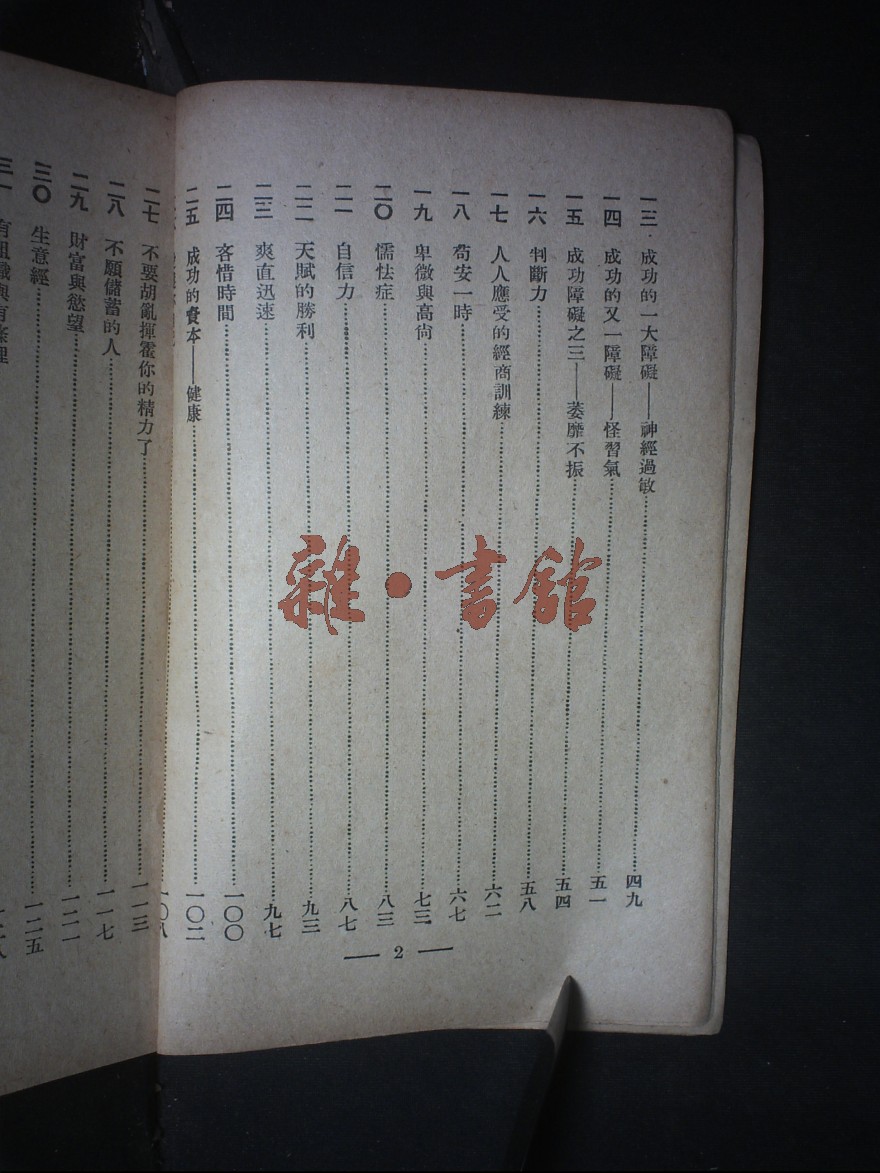 一三 成功的一大障礙——神經過敏 四九
一四 成功的又一障礙——怪習氣 五一
一五 成功障礙之三——萎靡不振 五四
一六 判斷力 五八
一七 人人應受的經商訓練 六二
一八 苟安一時 六七
一九 卑微與高尙 七三
二〇 懦怯症 八三
二一 自信力 八七
二二 天賦的勝利 九三
二三 爽直迅速 九七
二四 吝惜時間 一〇〇
二五 成功的資本——健康 一〇二
一〇八
— 2 —
二七 不要胡亂揮霍你的精力了 一一三
二八 不願儲蓄的人 一一七
二九 財富與慾望 一二一
三〇 生意經 一二五
三一 有組織與有條理
雜·書館